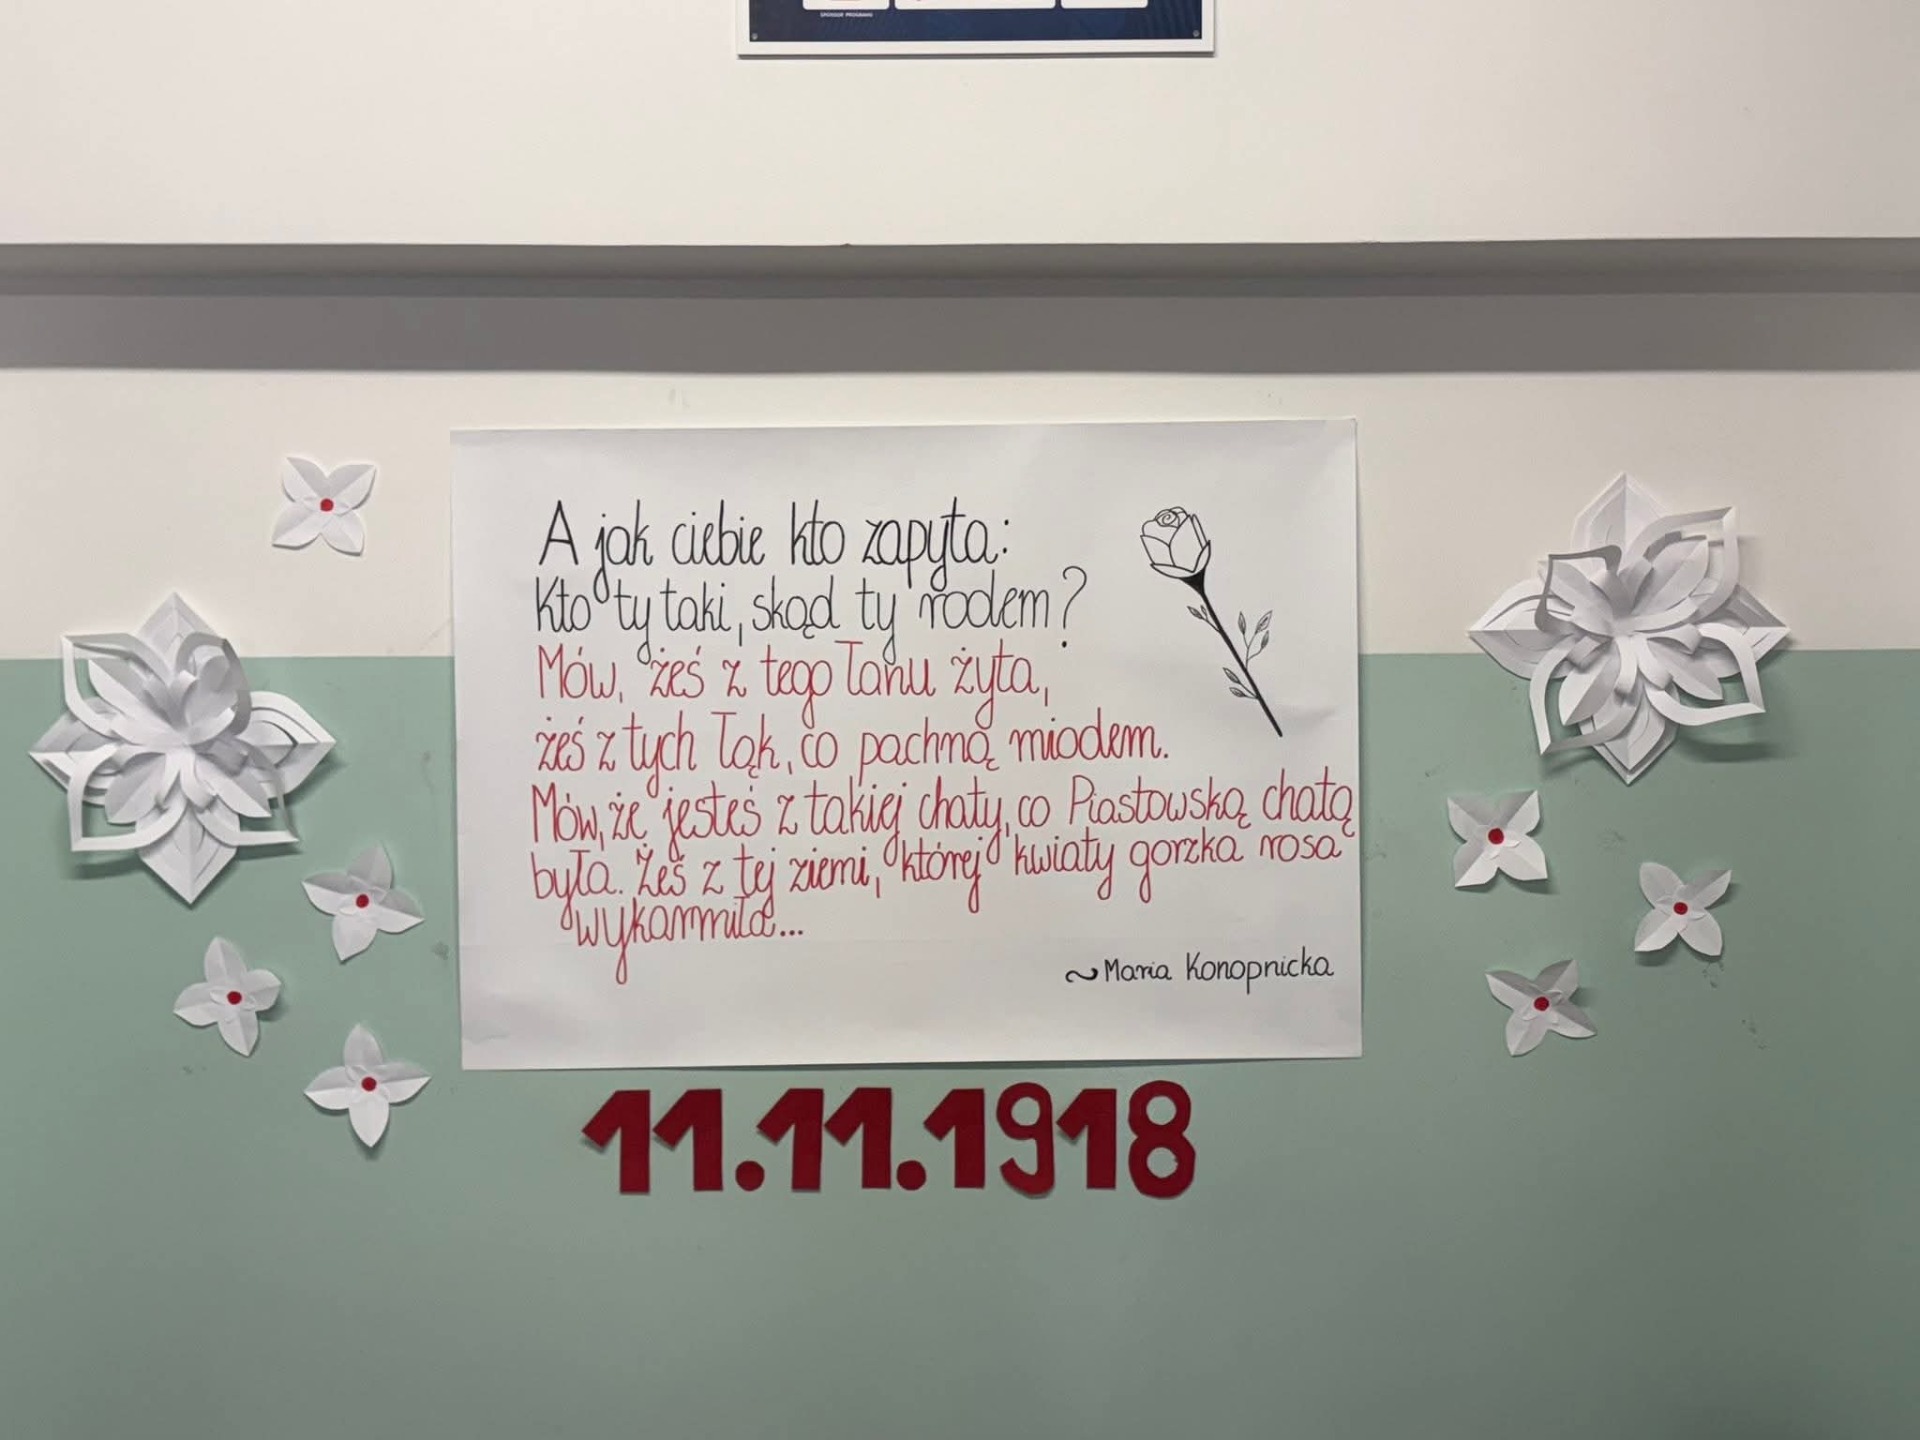 SPONSOR PROGRAMU
A jak ciebie kto zapyta:
Kto ty taki, skąd ty rodem?
Mów, żeś z tego łanu żyta,
żeś z tych łąk, co pachną miodem.
Mów, że jesteś z takiej chaty, co Piastowską chatą
była. Żeś z tej ziemi, której kwiaty gorzka rosa
wykarmiła...
~Maria Konopnicka
11.11.1918